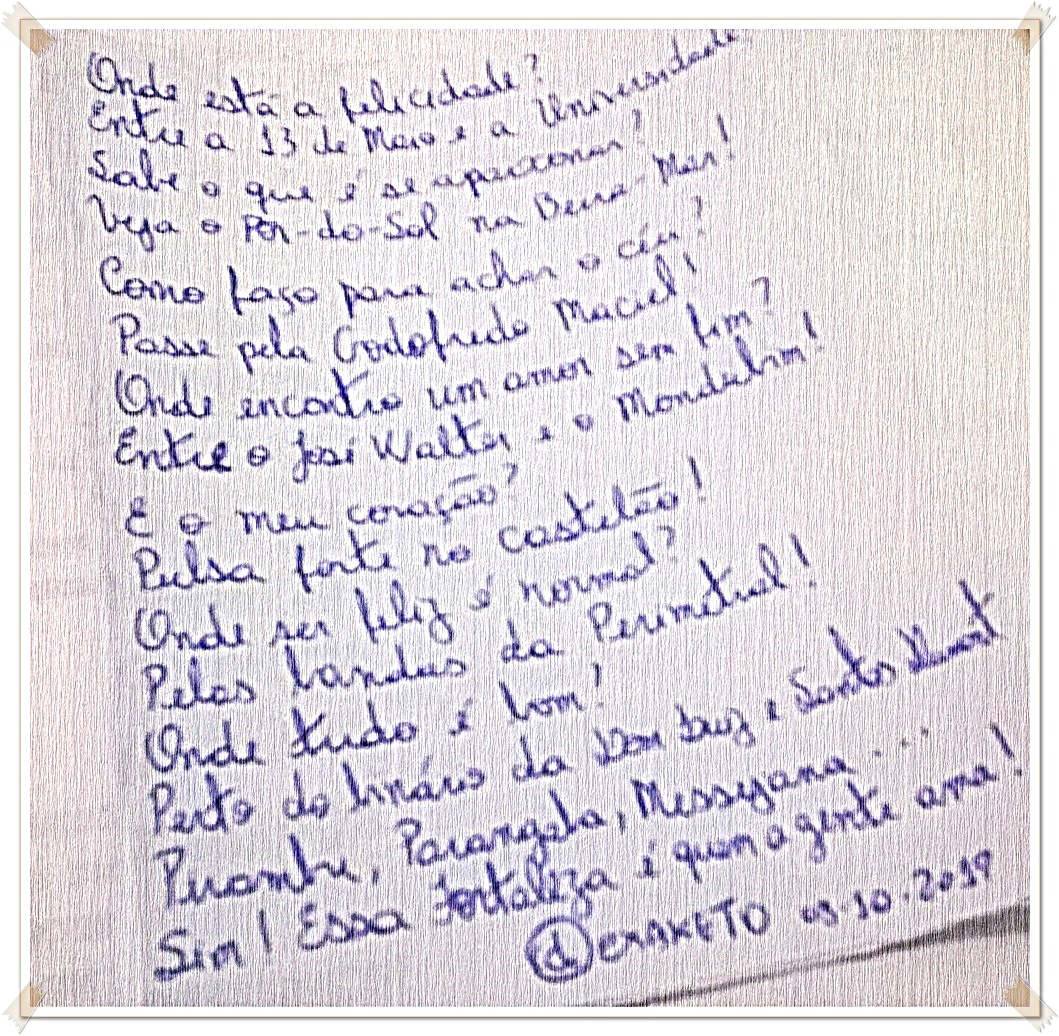 Onde está a felicidade?
Entre a 13 de Maio e a Universidade!
Sabe o que é se apaixonar?
Veja o Pôr-do-Sol na Beira-Mar!
Como faço para achar o céu?
Passe pela Godofredo Maciel!
Onde encontro um amor sem fim?
Entre o José Walter e o Mondubim!
E o meu coração?
Pulsa forte no Castelão!
Onde ser feliz é normal?
Pelas bandas da Perimetral!
Onde tudo é bom!
Perto do binário da Dom Luiz e Santos Dumont
Pirambu, Parangaba, Messejana...
Sim! Essa Fortaleza é quem a gente ama!
@ERAKETO .10.2019